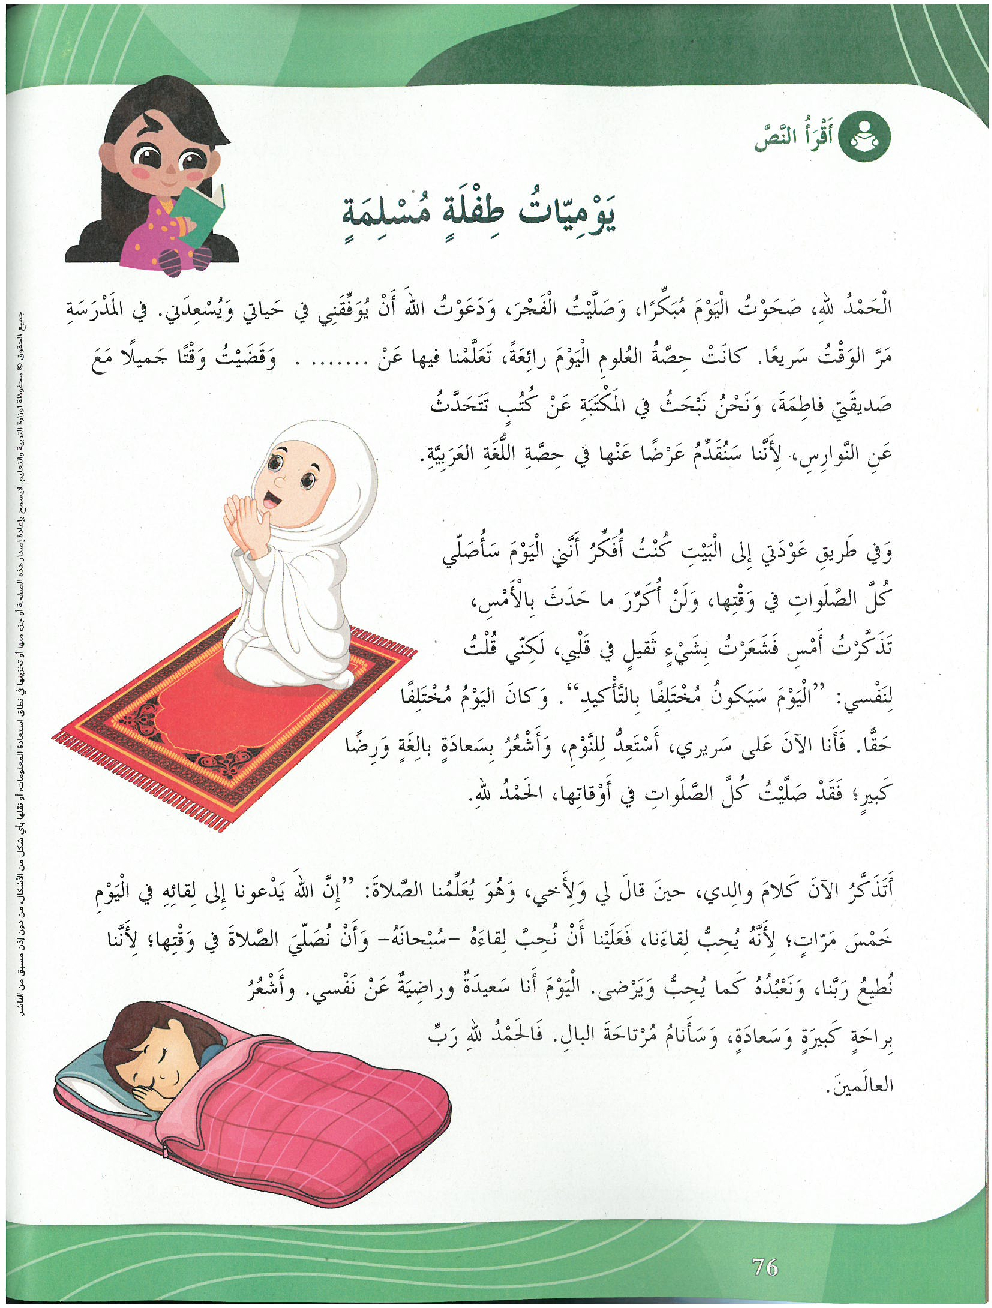 أَقْرَأُ النَّصَّ
يَوْمِيّاتُ طِفْلَةٍ مُسْلِمَةٍ
الْحَمْدُ لِلهِ، صَحَوْتُ الْيَوْمَ مُبَكِّرًا، وَصَلَّيْتُ الْفَجْرَ، وَدَعَوْتُ اللهَ أَنْ يُوَفِّقَنِي في حَياتي وَيُسْعِدَني. في الْمَدْرَسَةِ
مَرَّ الوَقْتُ سَريعًا. كانَتْ حِصَّةُ العُلومِ الْيَوْمَ رائِعَةً، تَعَلَّمْنا فيها عَنْ ........ . وَقَضَيْتُ وَقْتًا جَميلًا مَعَ
صَديقَتي فاطِمَةَ، وَنَحْنُ نَبْحَثُ في المَكْتَبَةِ عَنْ كُتُبٍ تَتَحَدَّثُ
عَنِ النَّوارِسِ، لِأَنَّنا سَنُقَدِّمُ عَرْضًا عَنْها في حِصَّةِ اللُّغَةِ العَرَبِيَّةِ.
وَفي طَريقِ عَوْدَتي إِلى الْبَيْتِ كُنْتُ أُفَكِّرُ أَنَّني الْيَوْمَ سَأُصَلّي
كُلَّ الصَّلَواتِ في وَقْتِها، وَلَنْ أُكَرِّرَ ما حَدَثَ بِالْأَمْسِ،
تَذَكَّرْتُ أَمْسِ فَشَعَرْتُ بِشَيْءٍ ثَقيلٍ في قَلْبي، لَكِنّي قُلْتُ
لِنَفْسي: "الْيَوْمَ سَيَكونُ مُخْتَلِفًا بِالتَّأْكيدِ". وَكانَ اليَوْمُ مُخْتَلِفًا
حَقًّا. فَأَنا الآنَ عَلى سَريري، أَسْتَعِدُّ لِلنَّوْمِ، وَأَشْعُرُ بِسَعادَةٍ بالِغَةٍ وَرِضًا
كَبيرٍ؛ فَقَدْ صَلَّيْتُ كُلَّ الصَّلَواتِ في أَوْقاتِها، الحَمْدُ لِلهِ.
أَتَذَكَّرُ الآنَ كَلامَ والِدي، حينَ قالَ لي وَلِأَخي، وَهُوَ يُعَلِّمُنا الصَّلاةَ: "إِنَّ اللهَ يَدْعونا إِلى لِقائِهِ في الْيَوْمِ
خَمْسَ مَرّاتٍ؛ لِأَنَّهُ يُحِبُّ لِقاءَنا، فَعَلَيْنا أَنْ نُحِبَّ لِقاءَهُ -سُبْحانَهُ- وَأَنْ نُصَلِّيَ الصَّلاةَ في وَقْتِها؛ لِأَنَّنا
نُطيعُ رَبَّنا، وَنَعْبُدُهُ كَما يُحِبُّ وَيَرْضى. الْيَوْمَ أَنا سَعيدَةٌ وراضِيَةٌ عَنْ نَفْسي. وأَشْعُرُ
بِراحَةٍ كَبيرَةٍ وَسَعادَةٍ، وَسَأَنامُ مُرْتاحَةَ البالِ. فَالحَمْدُ لِلهِ رَبِّ
العالَمينَ.
جميع الحقوق © محفوظة لوزارة التربية والتعليم. لا يسمح بإعادة إصدار هذه الصفحة أو جزء منها أو تخزينها في نطاق استعادة المعلومات، أو نقلها بأي شكل من الأشكال، من دون إذن مسبق من الناشر.
76